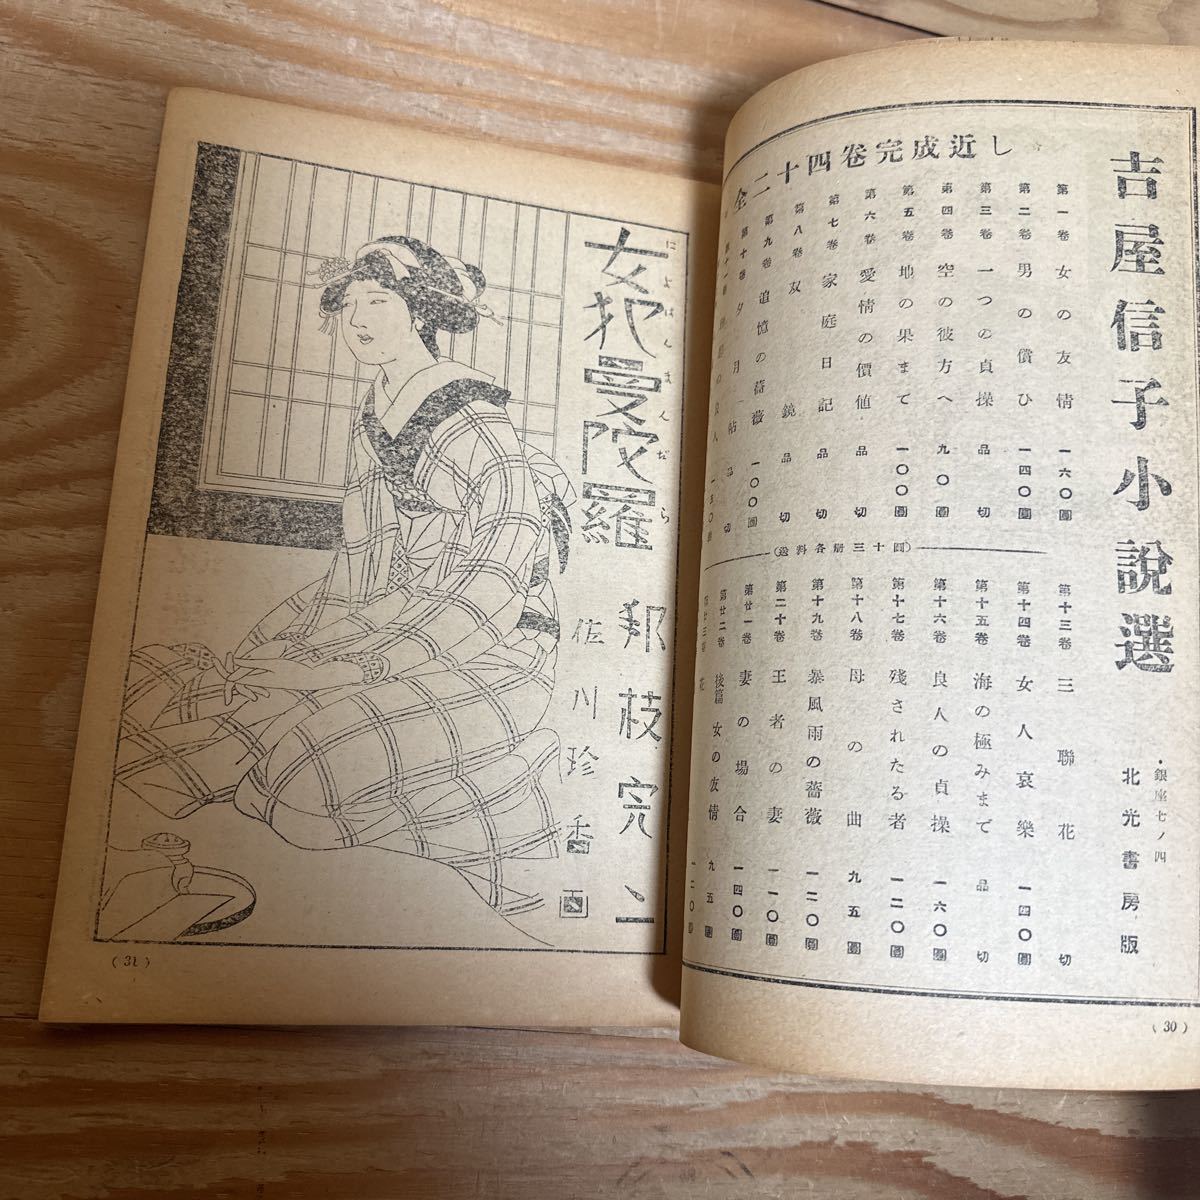 吉屋信子小說選
・銀座七ノ四
北光書房版
全二十四卷完成近し
第一卷 女の友情 一六〇圓
第二卷 男の償ひ 一四〇圓
第三卷 一つの貞操 品切
第四卷 空の彼方へ 九〇圓
第五卷 地の果まで 一〇〇圓
第六卷 愛情の價値 品切
第七卷 家庭日記 品切
第八卷 双鏡 品切
第九卷 追憶の薔薇 一〇〇圓
第十卷 夕月帖 品切
第十一卷 の良人 一五〇圓
(送料各册三十圓)
第十三卷 三聯花 品切
第十四卷 女人哀樂 一四〇圓
第十五卷 海の極みまで 品切
第十六卷 良人の貞操 一六〇圓
第十七卷 殘されたる者 一二〇圓
第十八卷 母の曲 九五圓
第十九卷 暴風雨の薔薇 一二〇圓
第二十卷 王者の妻 一一〇圓
第廿一卷 妻の場合 一四〇圓
第廿二卷 後篇女の友情 九五圓
第廿三卷 花 一二〇圓
(30)
女犯曼陀羅
によはんまんだら
邦枝完二
佐川珍香画
(31)